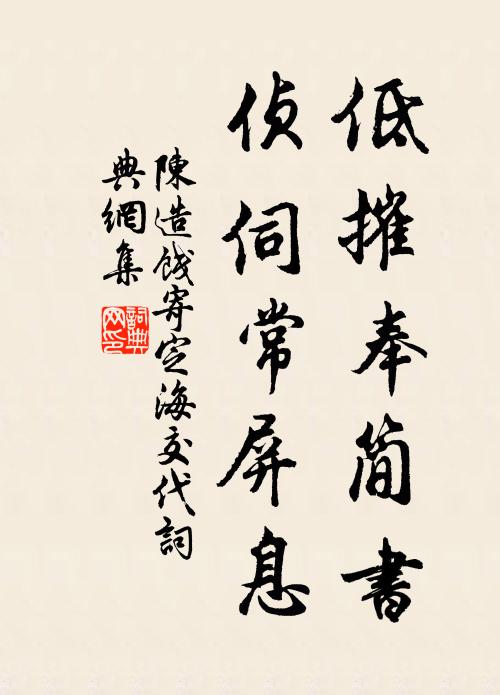 低摧奉简書
偵伺常屏息
陳造餞寄定海交代詞
典網集
詞典
网印